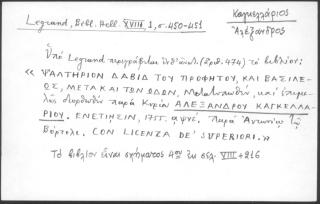 Legrand, Bibl. Hell. XVIII 1, σ. 450-451
Καγκελλάριος
Ἀλέξανδρος
Ὑπὸ Legrand περιγράφεται (ἀριθ. 474) τὸ βιβλίον:
« ΨΑΛΤΗΡΙΟΝ ΔΑΒΙΔ ΤΟΥ ΠΡΟΦΗΤΟΥ, ΚΑΙ ΒΑΣΙΛΕ-
ΩΣ, ΜΕΤΑ ΚΑΙ ΤΩΝ ΩΔΩΝ, Μεταтυπωθὲν, καὶ ἐπιμε-
λῶς διορθωθὲν παρὰ Κυρίου ΑΛΕΞΑΝΔΡΟΥ ΚΑΓΚΕΛΛΑ-
ΡΙΟΥ. ΕΝΕΤΙΗΣΙΝ, 1755. αψνέ. Παρὰ Ἀντωνίῳ τῷ
Βόρτολι. CON LICENZA DE' SUPERIORI. »
Τὸ βιβλίον εἶναι σχήματος 4ου ἐκ σελ. VIII + 216